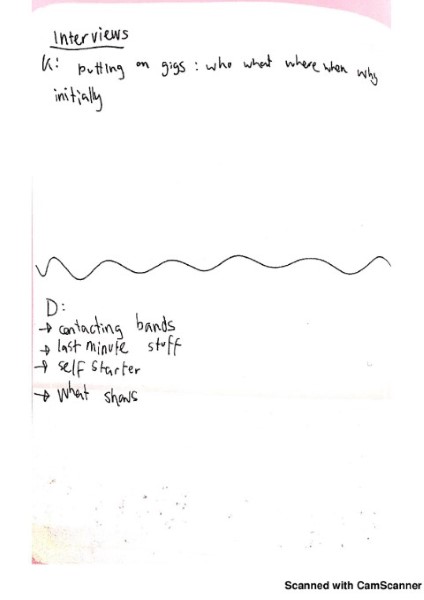 Interviews
K: putting on gigs : who what where when why
initially
D:
→ contacting bands
→ last minute stuff
→ self starter
→ What shows
Scanned with CamScanner